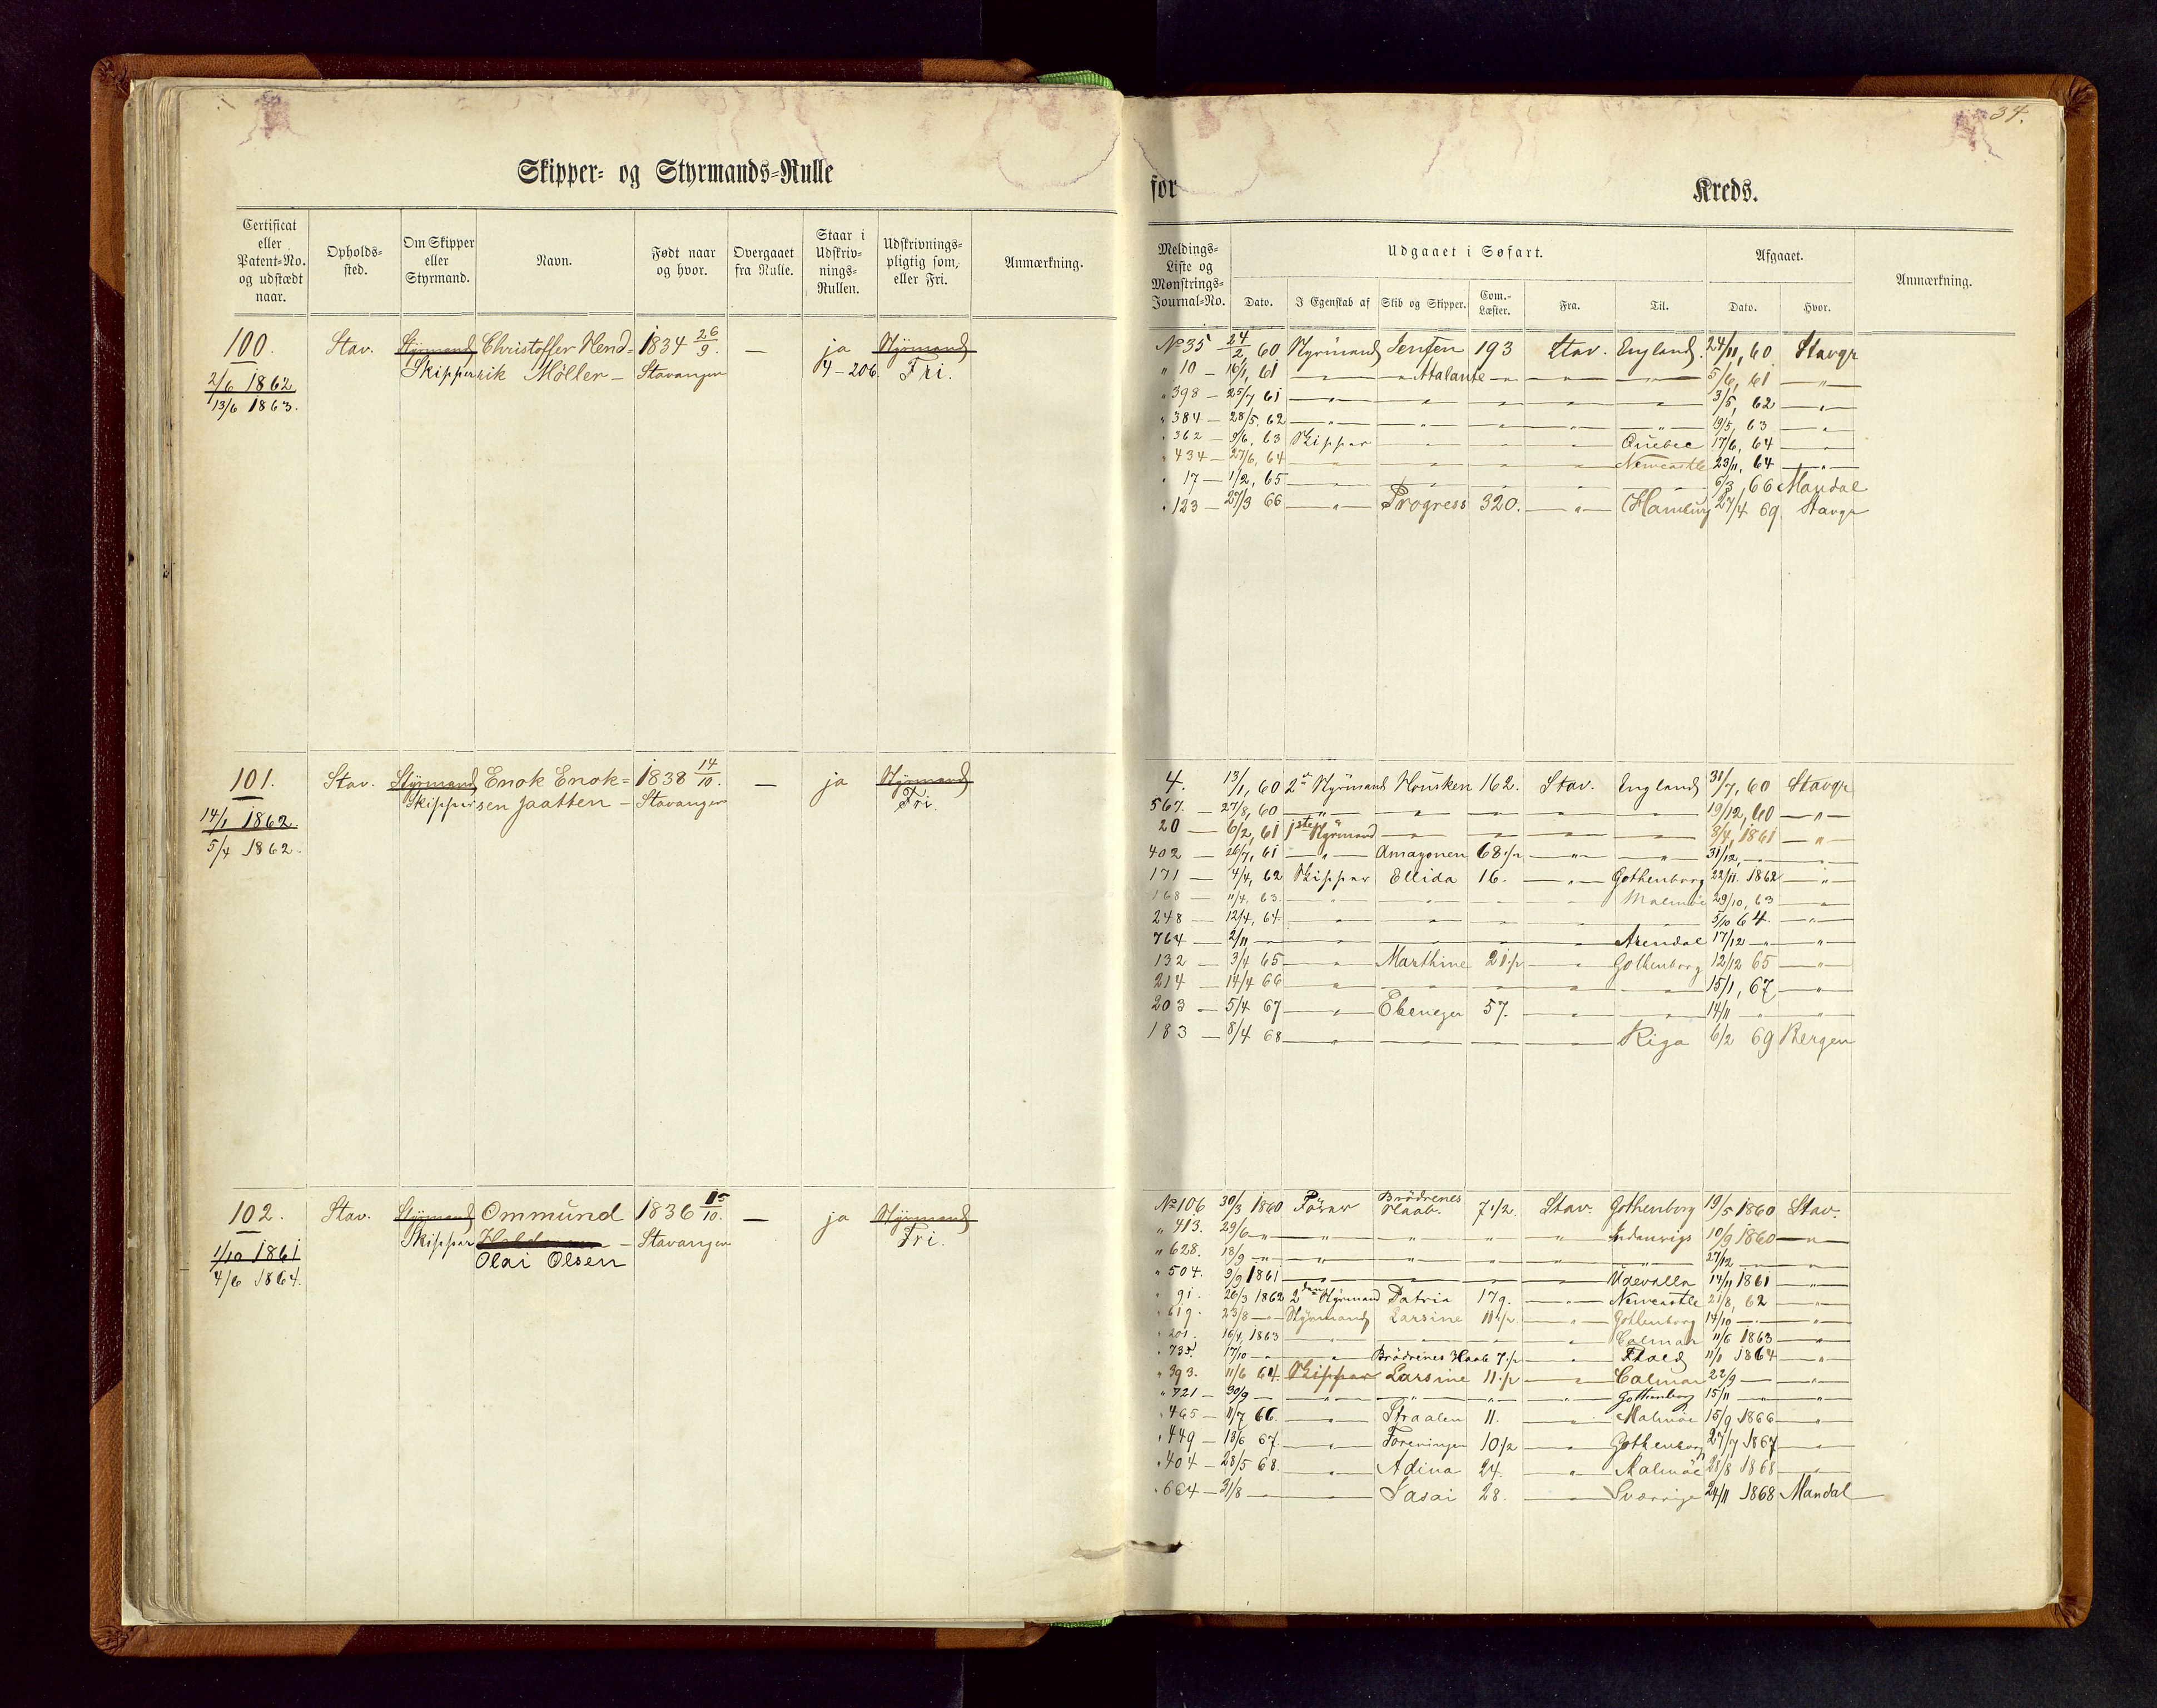 34.
Skipper- og Styrmands-Rulle
for Kreds.
Certificat eller Patent-No. og udstædt naar.
Opholds-sted.
Om Skipper eller Styrmand.
Navn.
Født naar og hvor.
Overgaaet fra Rulle.
Staar i Udskriv-nings-Rullen.
Udskrivnings-pligtig som, eller Fri.
Anmærkning.
Meldings-Liste og Mønstrings-Journal-No.
Udgaaet i Søfart.
Dato. I Egenskab af Skib og Skipper. Com.-Læster. Fra. Til.
Afgaaet.
Dato. Hvor.
Anmærkning.
100. Stav. Styrmand Christoffer Hend= 1834 26/9. — ja Styrmand
Skipper rik Möller — Stavanger 4-206. Fri.
2/6 1862
13/6 1863.
No 35 24/2, 60 Styrmand Jensen 193 Stav. England 24/11, 60 Stavgr
" 10 — 16/1, 61 — " Atalante — " — — — 5/6, 61 — " —
" 398 — 25/7 61 — " — " " " " — 3/5, 62 — " —
" 384 — 28/5. 62 — " — " " " " — 19/5, 63 — "
" 362 — 9/6, 63 Skipper — " " " Quebec 17/6, 64 — "
" 434 — 27/6, 64 — " " " " Newcastle 23/11, 64 — " —
" 17 — 1/2, 65 — " " " " — 6/3, 66 Mandal
" 123 — 27/3 66 — " — Progress 320. — " — Hamburg 27/4 69 Stavgr
101. Stav. Styrmand Enok Enok= 1838 14/10. — ja Styrmand
Skipper sen Jaatten — Stavanger Fri.
14/1 1862.
5/4 1862.
4. 13/1, 60 2den Styrmand Housken 162. Stav. England 31/7, 60 Stavgr
567. — 27/8, 60 — " — " " " " 19/12, 60 — " —
20 — 6/2, 61 1ste Styrmand — " " " " 8/4, 1861 — "
402 — 26/7, 61 — " — Amazonen 68 1/2 — " — " 31/12, — " — "
171 — 4/4, 62 Skipper Ellida 16. — " — Gothenborg 22/11. 1862 — " —
168 — 11/4, 63. — " " " " Malmöe 29/10, 63 — "
248 — 12/4, 64. — " " " " — 5/10, 64. — " —
764 — 2/11 — " " " " " Arendal 17/12 — " — "
132 — 3/4 65 — " — Marthine 21 1/2 — " Gothenborg 12/12 65 — " —
214 — 14/4 66 — " " " " " 15/1, 67 — "
203 — 5/4 67 — " — Ebenezer 57. — " — " 14/11 " "
183 — 8/4 68 — " " " " Riga 6/2 69 Bergen
102. Stav. Styrmand Ommund 1836 15/10. — ja Styrmand
Skipper — Stavanger Fri.
Olai Olsen
1/10 1861
4/6 1864.
No 106 30/3 1860 Försar Brödrenes Haab. 7 1/2. Stav. Gothenborg 19/5 1860 Stav.
" 413. 29/6 — " " " " " 10/9 1860 — "
" 628. 18/9 — " " " " " " 27/12 — "
" 504. 9/9 1861 — " " " " Udevalla 14/11 1861 — " —
" 91. 26/3 1862 2den Styrmand Patria 179. — " — Newcastle 21/8, 62 — " —
" 619. 23/8 — " — Styrmand Larsine 11 1/2. — " Gothenborg 14/10 — " — "
" 201. 16/4, 1863 — " " " " Calmar 11/6 1863 — "
" 735. 17/10 — " " Brödrenes Haab 7 1/2 — " 11/1 1864 — "
" 393. 11/6 64. Skipper Larsine 11 1/2 — " Calmar 22/9 — " —
" 721 — 30/9 — " " " " " Gothenborg 15/11 — " — "
" 465 — 11/7 66. — " — Straalen 11. — " Malmöe 15/9 1866 — "
" 449 — 13/6 67. — " — Foreningen 10 1/2 — " Gothenborg 27/7 1867 — "
" 404 — 28/5 68. — " — Adina 24. — " — Malmöe 21/8 1868 — "
" 664 — 31/8 — " — Sasai 28. — " — Sverrige 24/11 1868 Mandal